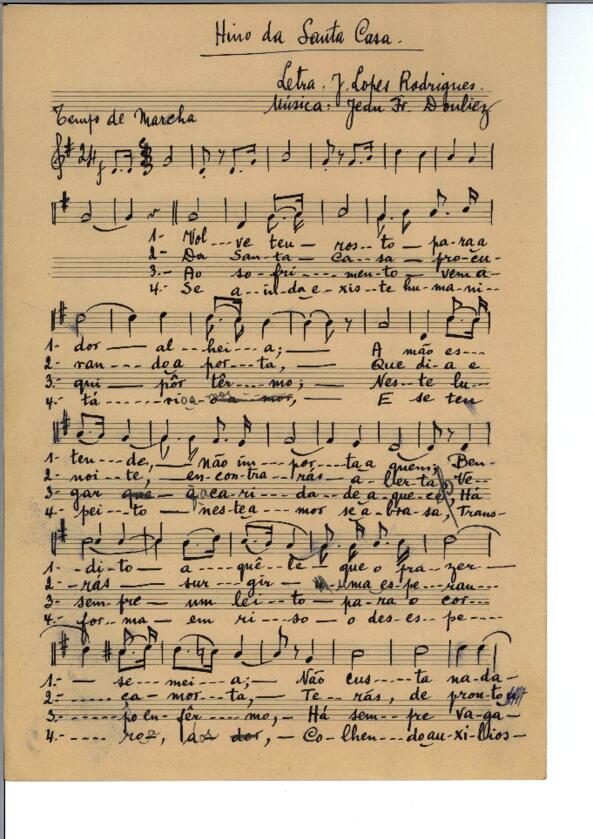 Hino da Santa Casa.
Letra. J. Lopes Rodrigues.
Música: Jedn Fr. Doubliez
Tempo de Marcha
24
f
1- Vol---ve teu— ros--to— para a
2- Da San--ta— Ca--sa— procu--
3.- Ao so-fri---- mento— vem a-
4.- Se a--in-da e-xis--te hu-ma-ni--
1- dor— al--hei---a;— A mão es---
2- ran---do a por--ta,— Que di-a e
3.- qui— pôr têr---mo;— Nes-te lu-
4.- tá---rio a- mor,— E se teu
1- ten--de,— não im---por--ta a quem; Ben-
2- noi--te,— en-con-tra--rás— a-ber-ta; Ve--
3- gar que— ca-ri---da--de a-que-ce, Há
4.- pei--to— nes-te a--mor se a-bra-sa, Trans-
1- -di-to— a---quê--le— que o pra-zer—
2- rás— sur--gir— u-ma es-pe-ran---
3- sem-pre— um lei--to— pa-ra o cor---
4.- for-ma— em ri---so— o des-es-pe----
1.- — se--mei--a;— Não cus---ta na-da-
2.- ----- ça-mor--ta,— Te-rás, de pronto
3.- ----- po en-fêr---mo,— Há sem--pre va-ga-
4.- ---- ro, dor,— Co-lhen--do au-xi-lios-